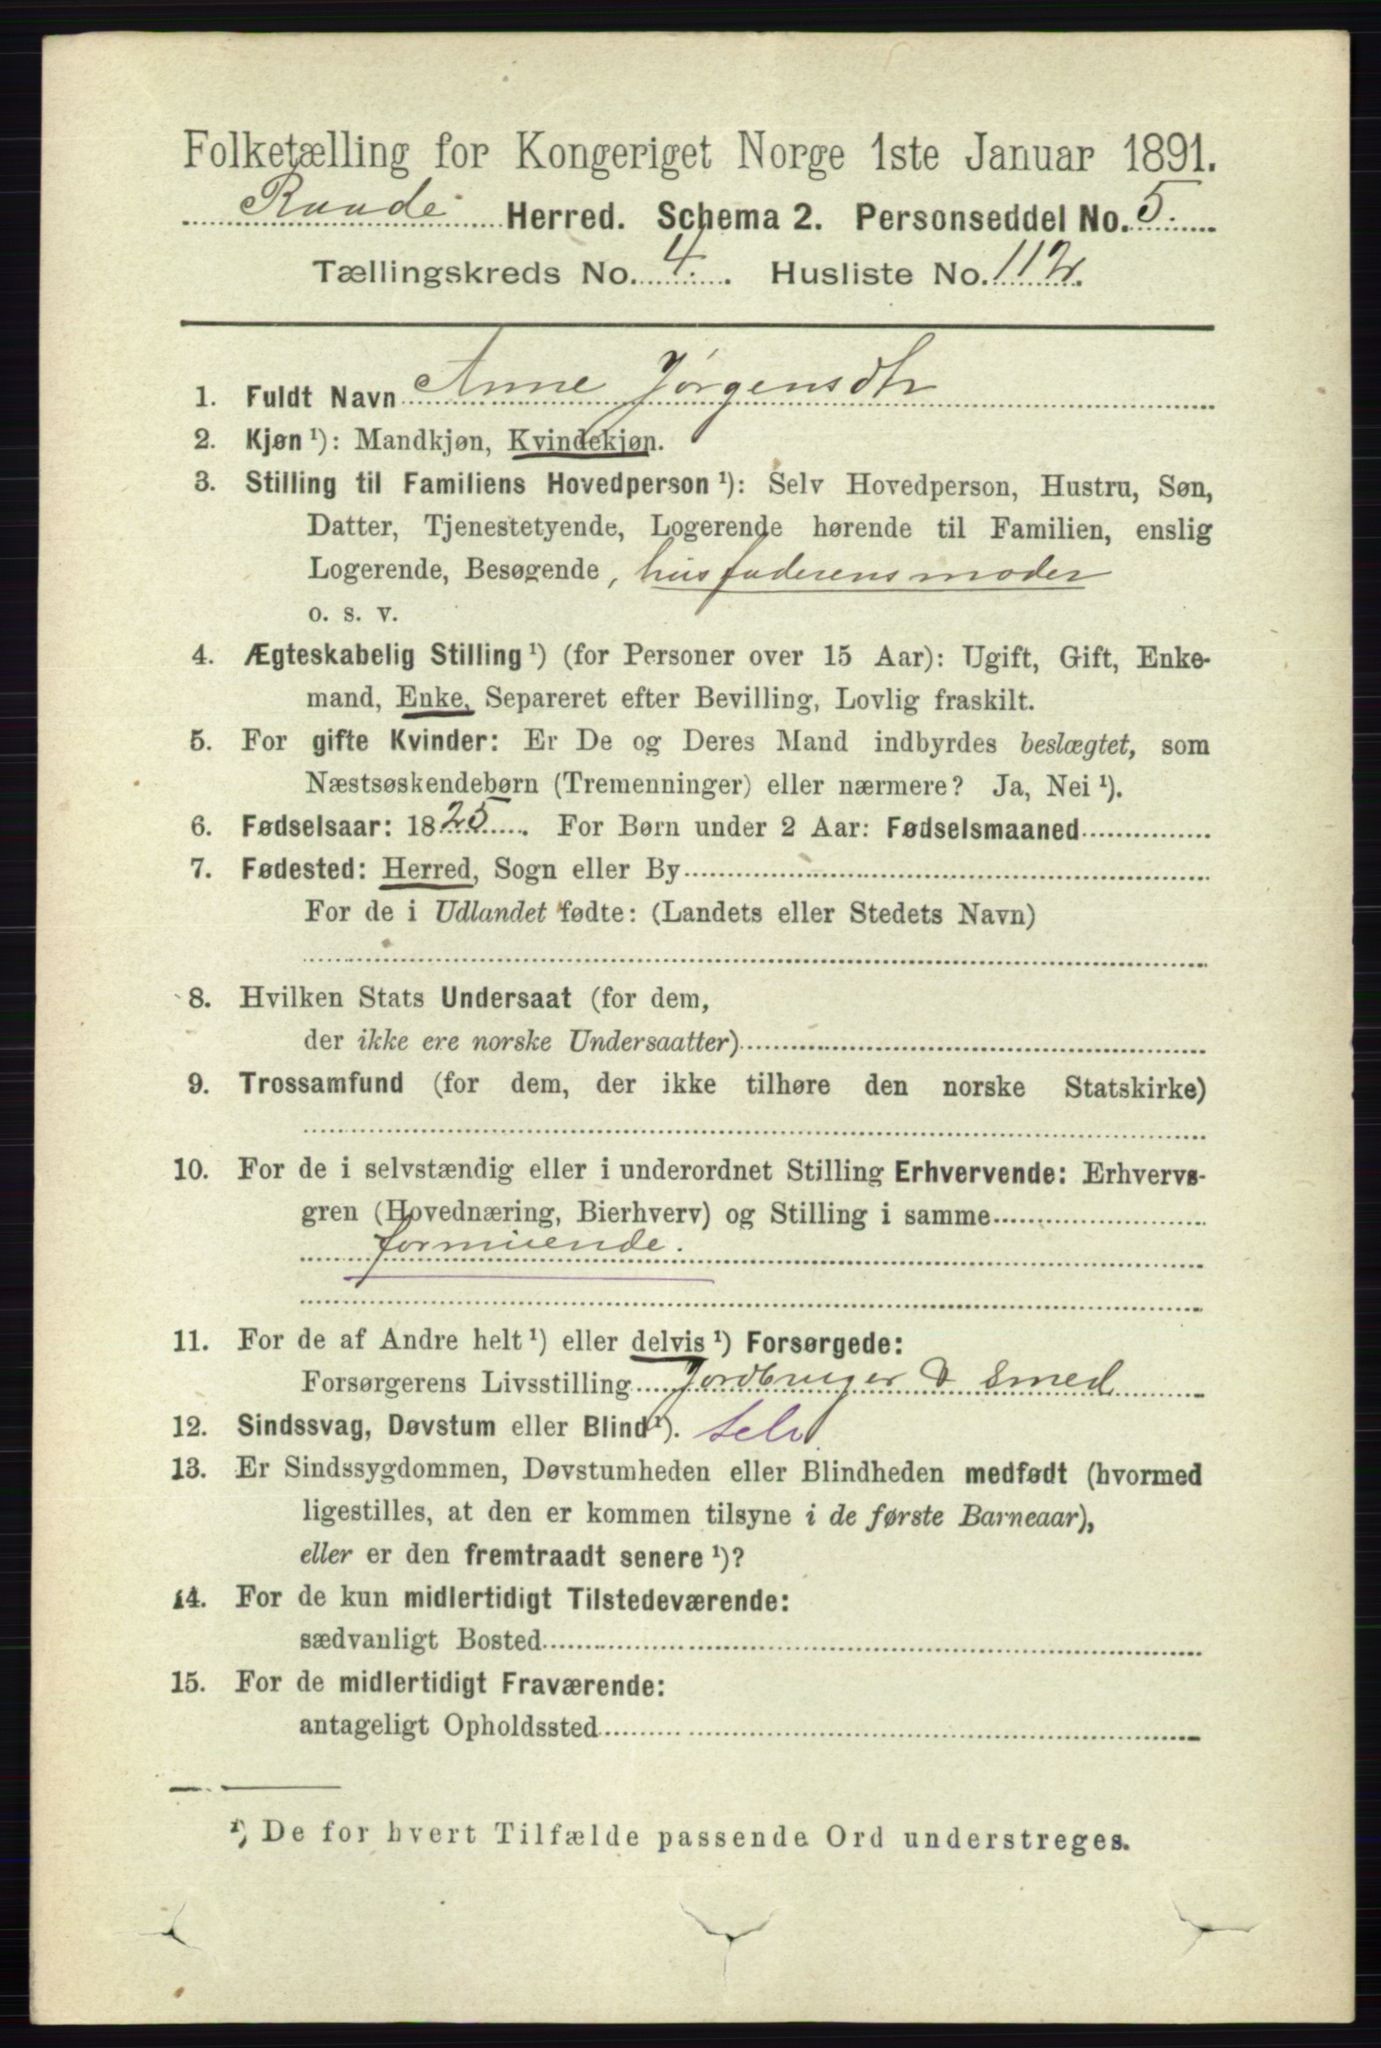 Folketælling for Kongeriget Norge 1ste Januar 1891.
Raade Herred. Schema 2. Personseddel No. 5.
Tællingskreds No. 4. Husliste No. 112.
1. Fuldt Navn Anne Jørgensdtr
2. Kjøn ¹): Mandkjøn, Kvindekjøn.
3. Stilling til Familiens Hovedperson ¹): Selv Hovedperson, Hustru, Søn,
Datter, Tjenestetyende, Logerende hørende til Familien, enslig
Logerende, Besøgende, husfaderens moder
o. s. v.
4. Ægteskabelig Stilling ¹) (for Personer over 15 Aar): Ugift, Gift, Enke-
mand, Enke, Separeret efter Bevilling, Lovlig fraskilt.
5. For gifte Kvinder: Er De og Deres Mand indbyrdes beslægtet, som
Næstsøskendebørn (Tremenninger) eller nærmere? Ja, Nei ¹).
6. Fødselsaar: 1825. For Børn under 2 Aar: Fødselsmaaned
7. Fødested: Herred, Sogn eller By
For de i Udlandet fødte: (Landets eller Stedets Navn)
8. Hvilken Stats Undersaat (for dem,
der ikke ere norske Undersaatter)
9. Trossamfund (for dem, der ikke tilhøre den norske Statskirke)
10. For de i selvstændig eller i underordnet Stilling Erhvervende: Erhvervs-
gren (Hovednæring, Bierhverv) og Stilling i samme
formuende.
11. For de af Andre helt ¹) eller delvis ¹) Forsørgede:
Forsørgerens Livsstilling Jordbruger & Smed
12. Sindssvag, Døvstum eller Blind ¹). Selv
13. Er Sindssygdommen, Døvstumheden eller Blindheden medfødt (hvormed
ligestilles, at den er kommen tilsyne i de første Barneaar),
eller er den fremtraadt senere ¹)?
14. For de kun midlertidigt Tilstedeværende:
sædvanligt Bosted
15. For de midlertidigt Fraværende:
antageligt Opholdssted
¹) De for hvert Tilfælde passende Ord understreges.